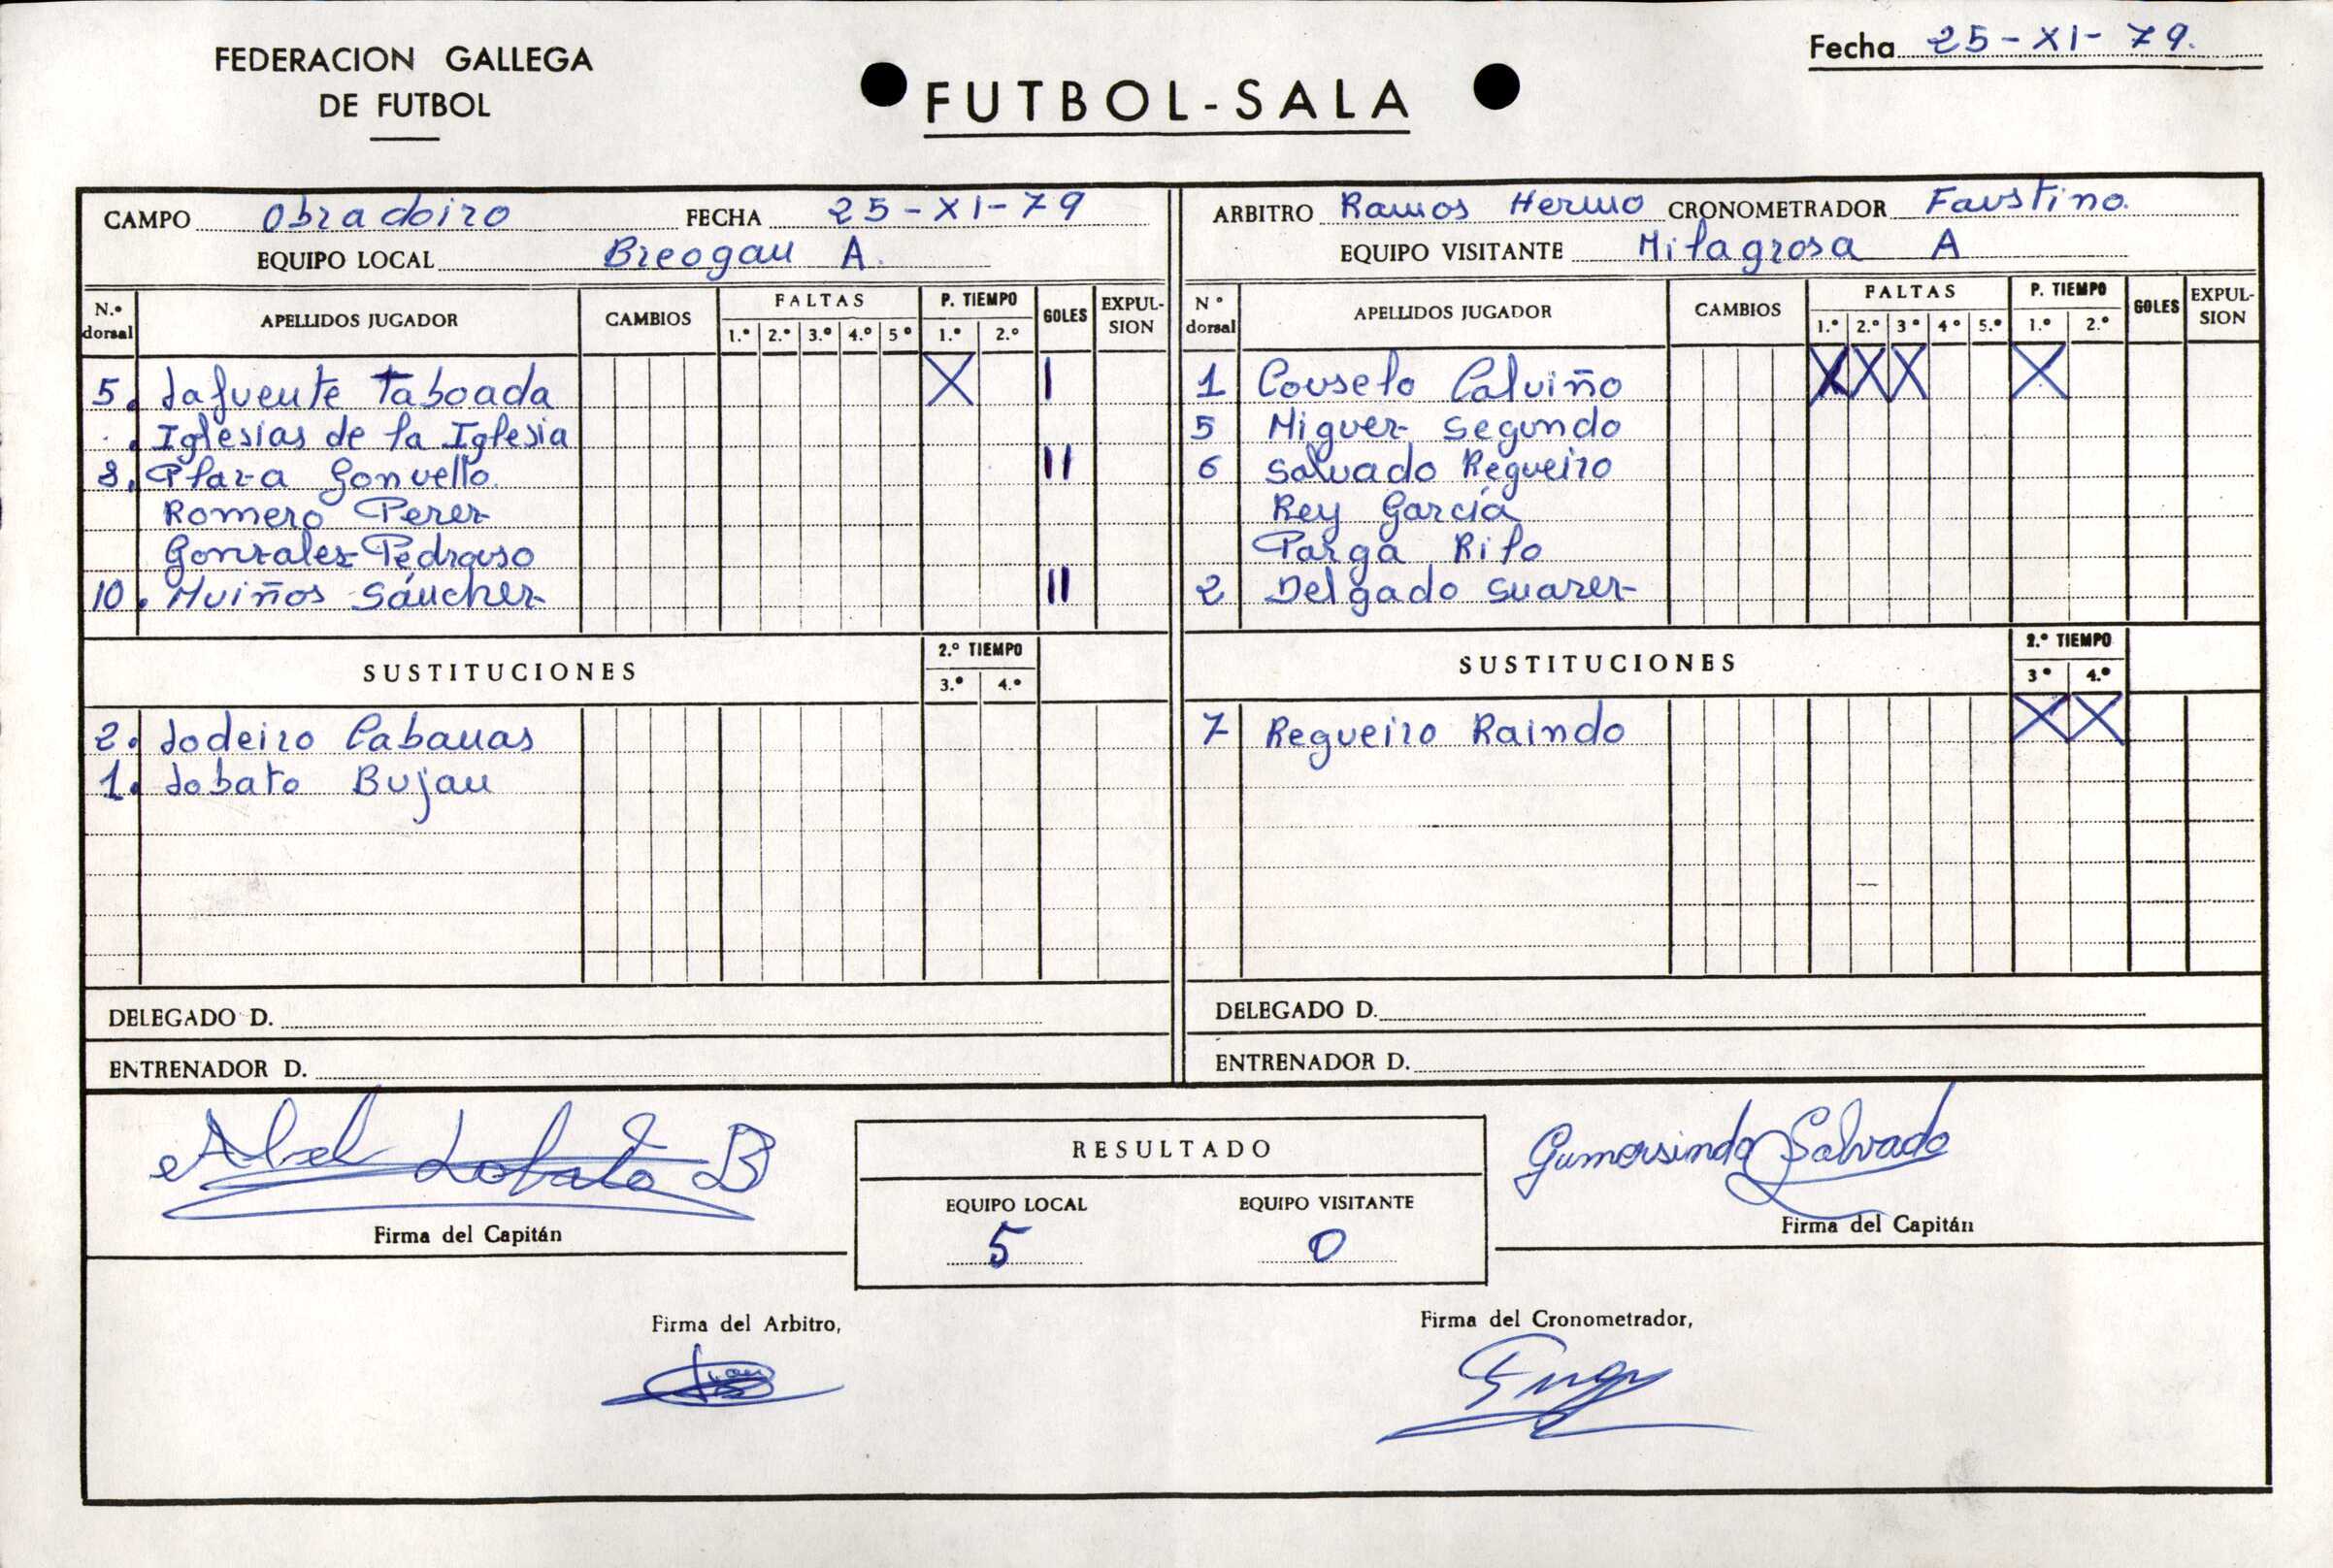 FEDERACION GALLEGA
DE FUTBOL
FUTBOL-SALA
Fecha 25-XI-79.
CAMPO Obradoiro FECHA 25-XI-79
EQUIPO LOCAL Breogan A.
N.º dorsal APELLIDOS JUGADOR CAMBIOS FALTAS 1.º 2.º 3.º 4.º 5º P. TIEMPO 1.º 2.º GOLES EXPULSION
5. Lafuente Taboada X I
. Iglesias de la Iglesia
8. Plaza Gonvello II
Romero Perez
Gonzalez Pedrouso
10. Muiños Sánchez II
SUSTITUCIONES 2.º TIEMPO 3.º 4.º
2. Lodeiro Cabanas
1. Lobato Bujan
DELEGADO D.
ENTRENADOR D.
ARBITRO Ramos Hermo CRONOMETRADOR Faustino.
EQUIPO VISITANTE Milagrosa A
N º dorsal APELLIDOS JUGADOR CAMBIOS FALTAS 1.º 2.º 3º 4º 5.º P. TIEMPO 1.º 2.º GOLES EXPULSION
1 Couselo Calviño X X X X
5 Miguez Segundo
6 Salvado Regueiro
Rey García
Parga Rilo
2 Delgado Suarez
SUSTITUCIONES 2.º TIEMPO 3º 4.º
7 Regueiro Raindo X X
DELEGADO D.
ENTRENADOR D.
Abel Lobato B
Firma del Capitán
RESULTADO
EQUIPO LOCAL EQUIPO VISITANTE
5 0
Gumersindo Salvado
Firma del Capitán
Firma del Arbitro,
Firma del Cronometrador,